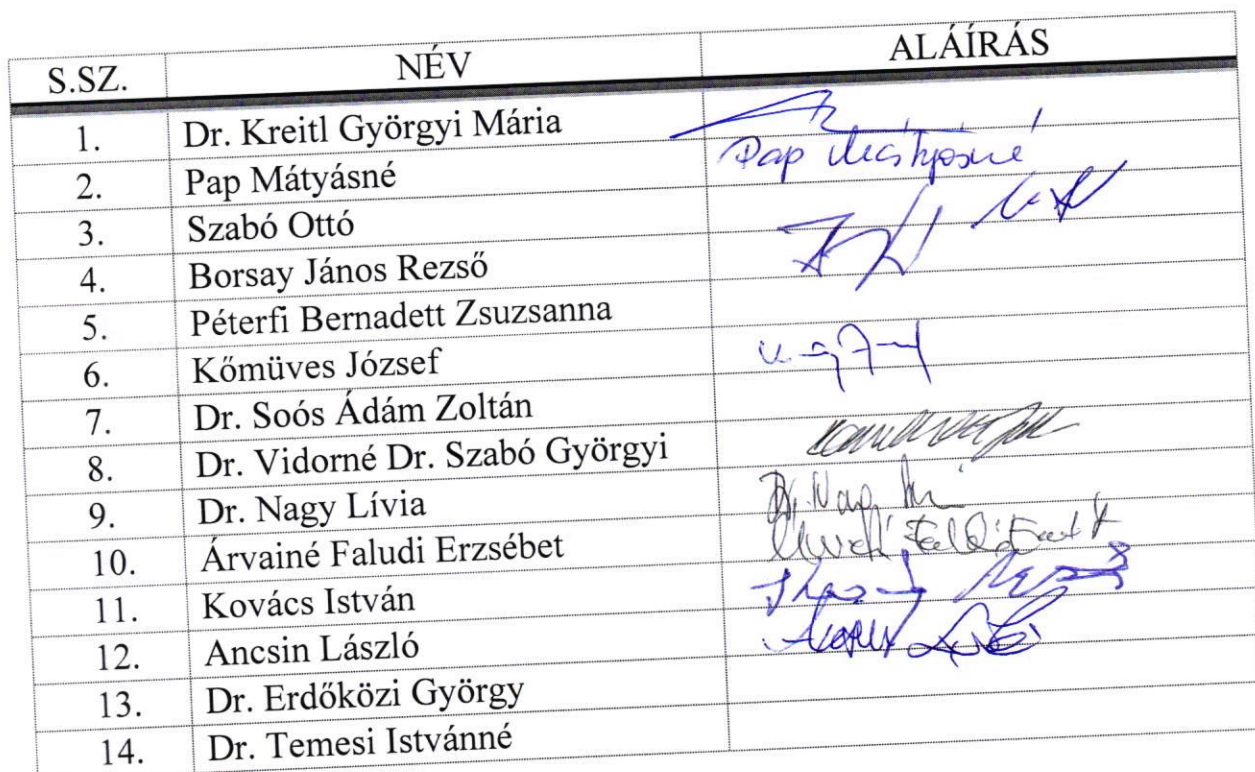 S.SZ. NÉV ALÁÍRÁS
1. Dr. Kreitl Györgyi Mária
2. Pap Mátyásné Pap Mátyásné
3. Szabó Ottó
4. Borsay János Rezső
5. Péterfi Bernadett Zsuzsanna
6. Kőmüves József
7. Dr. Soós Ádám Zoltán
8. Dr. Vidorné Dr. Szabó Györgyi
9. Dr. Nagy Lívia
10. Árvainé Faludi Erzsébet
11. Kovács István
12. Ancsin László
13. Dr. Erdőközi György
14. Dr. Temesi Istvánné